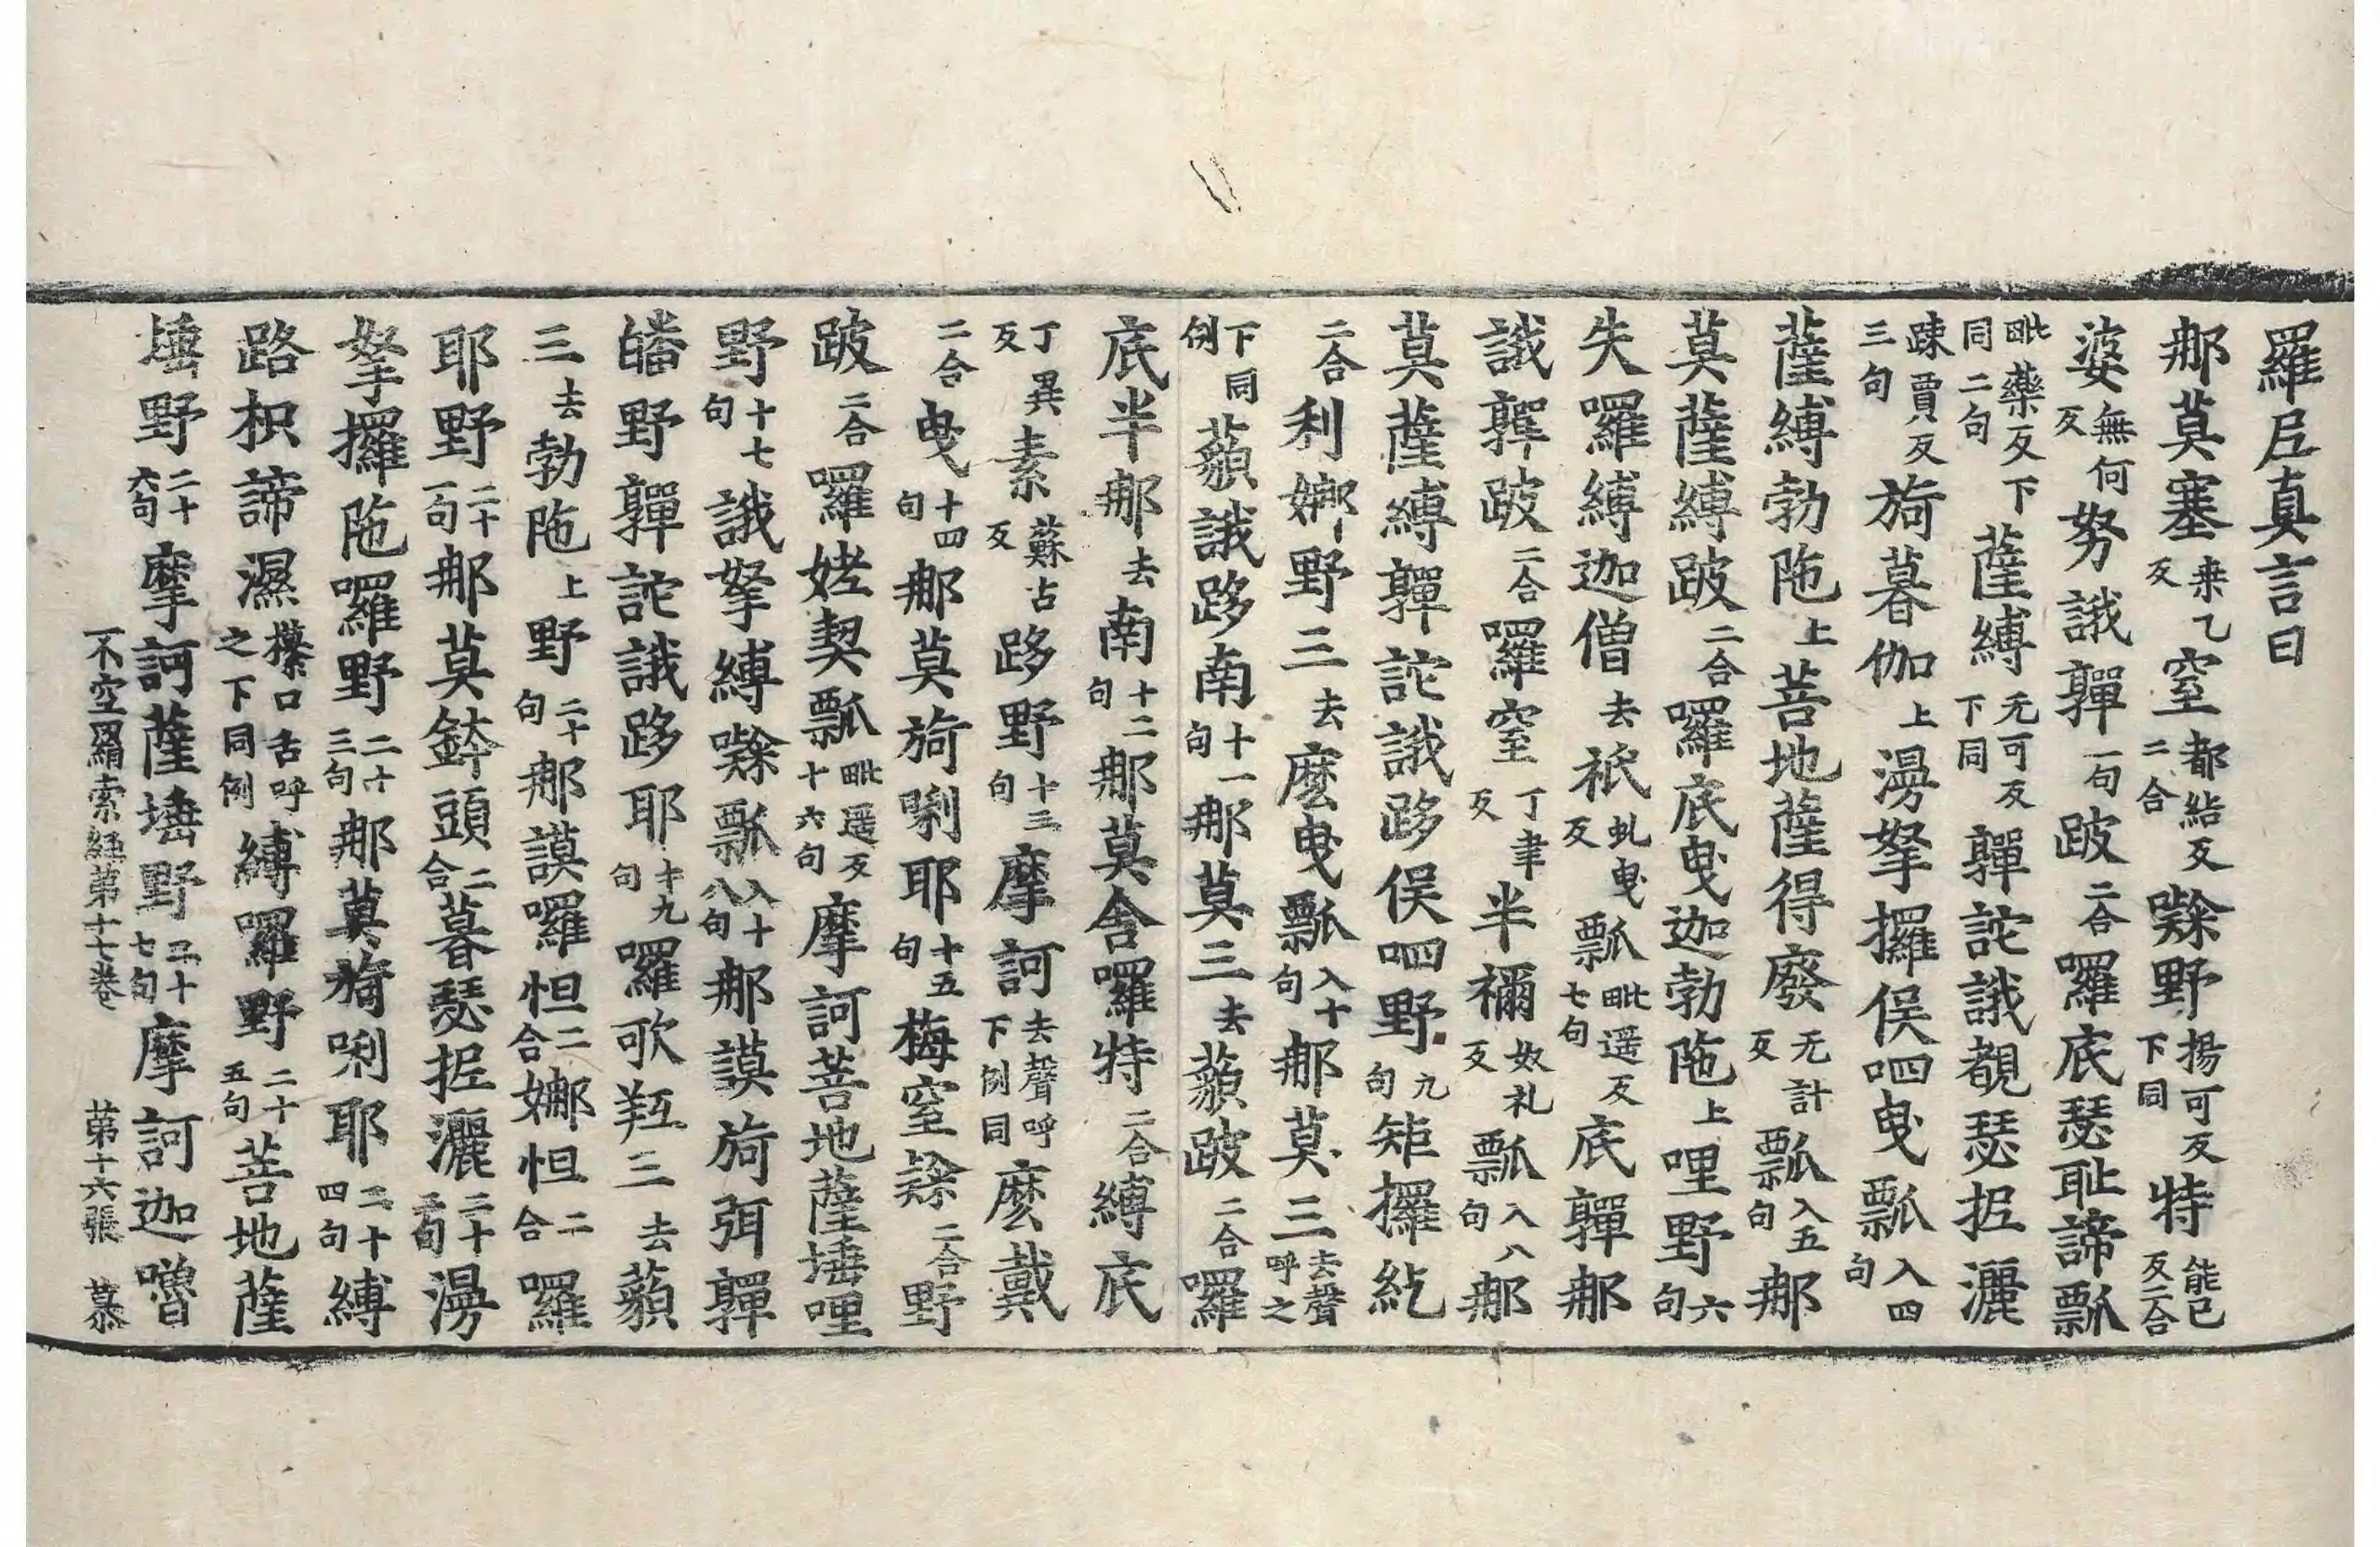 羅𡰱真言曰
那莫塞来乙反窒都結反二合㘑野揚可反下同特能巳反二合
婆無何反努誐嚲一句跛二合囉底瑟耻諦瓢
毗藥反下同二句薩縛无可反下同嚲詑誐覩瑟抳灑
踈賈反三句旖暮伽上湯拏攞俁呬曳瓢入四句
薩縛勃陁上菩地薩得廢无計反瓢入五句那
莫薩縛跛二合囉底曳迦勃陁上哩野六句
失囉縛迦僧去祇虬曳反瓢毗遥反七句底嚲那
誐嚲跛二合囉窒丁聿反半禰奴礼反瓢入八句那
莫薩縛嚲詑誐跢俁呬野九句矩攞紇
二合利娜野三去麽曳瓢入十句那莫三去聲呼之
下同例藐誐跢南十一句那莫三去藐跛二合囉
底半那去南十二句那莫舍囉特二合縛底
丁異反素蘇占反跢野十三句摩訶去聲呼下例同麽戴
二合曳十四句那莫旖唎耶十五句梅窒㘑二合野
跛二合囉姥契瓢毗遥反十六句摩訶菩地薩埵哩
野十七句誐拏縛㘑瓢入十八句那謨旖弭嚲
皤野嚲詑誐跢耶十九句囉歌羝三去藐
三去勃陁上野二十句那謨囉怛二合娜怛二合囉
耶野二十一句那莫鉢頭二合暮瑟抳灑二十二句湯
拏攞陁囉野二十三句那莫旖唎耶二十四句縛
路枳諦濕攥口舌呼之下同例縛囉野二十五句菩地薩
埵野二十六句摩訶薩埵野二十七句摩訶迦嚕
不空羂索經第十七卷 第十六張 慕